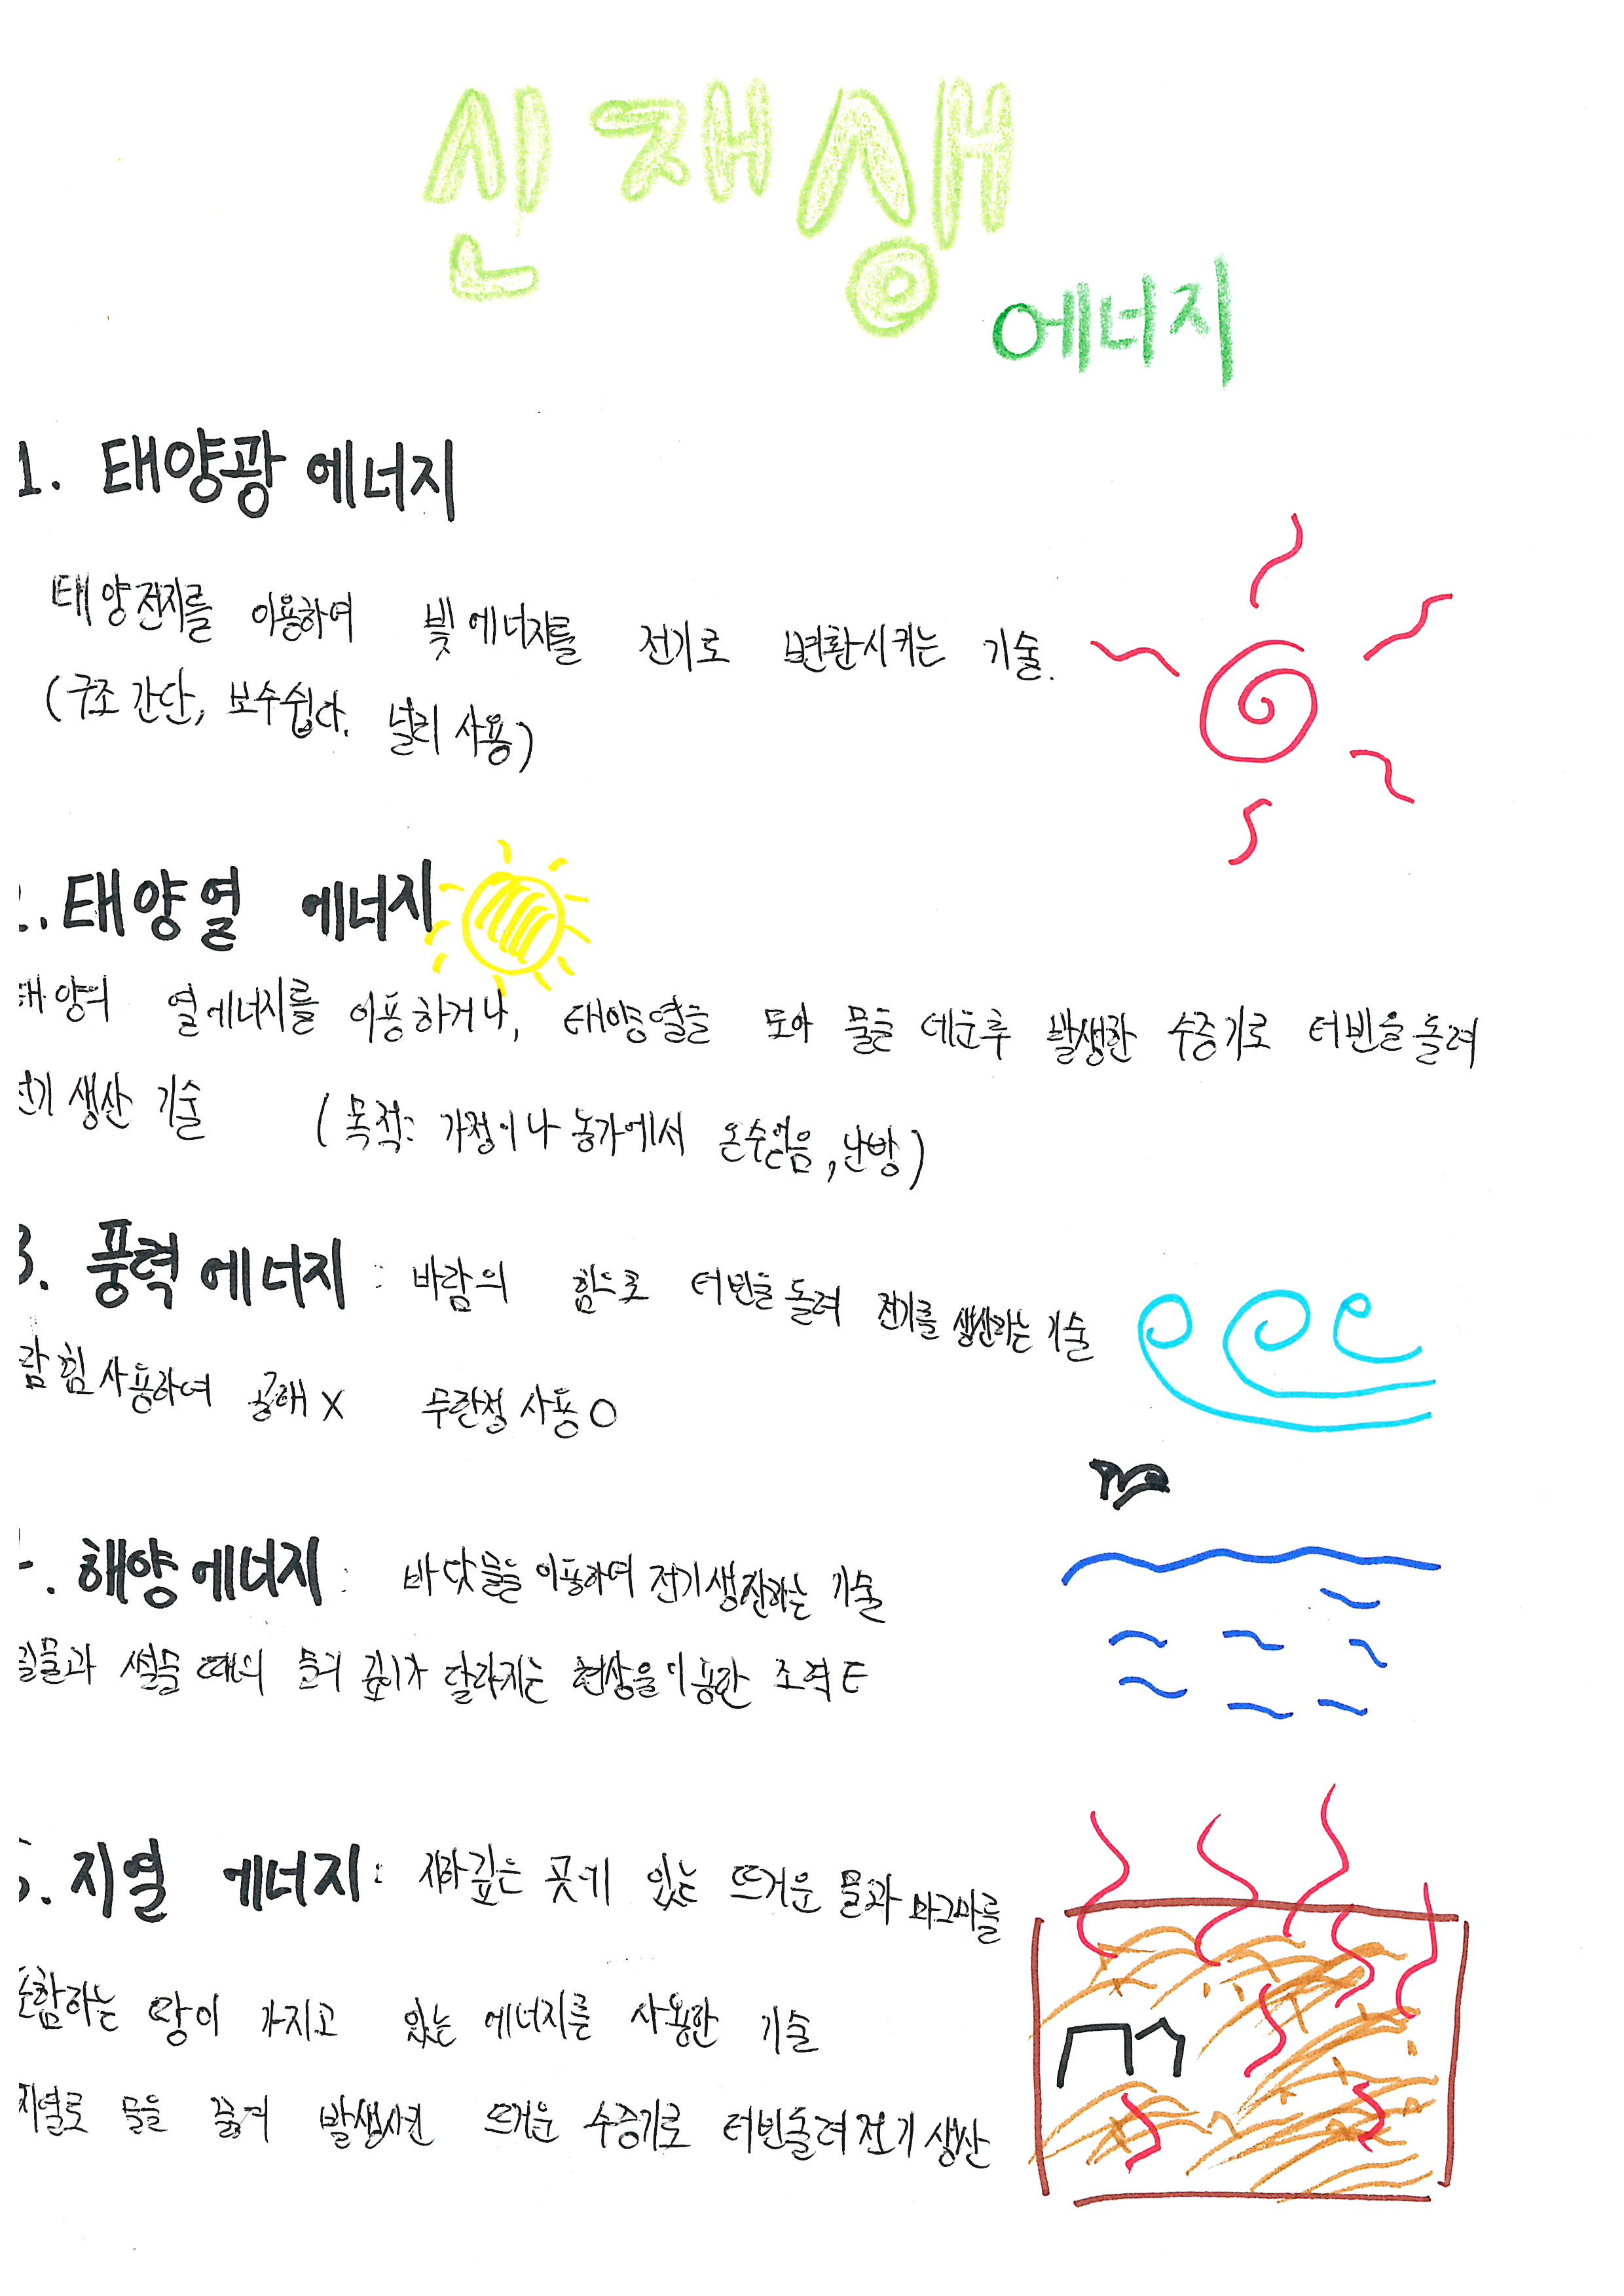 신재생
에너지
1. 태양광 에너지
태양전지를 이용하여 빛에너지를 전기로 변환시키는 기술.
(구조 간단, 보수쉽다. 널리 사용)
2. 태양열 에너지
태양의 열에너지를 이용하거나, 태양열을 모아 물을 데운후 발생한 수증기로 터빈을 돌려
전기 생산 기술 (목적: 가정이나 농가에서 온수얻음, 난방)
3. 풍력 에너지 : 바람의 힘으로 터빈을 돌려 전기를 생산하는 기술
람 힘 사용하여 공해 X 무한정 사용 O
. 해양 에너지 : 바닷물을 이용하여 전기생산하는 기술
밀물과 썰물 때의 물의 깊이가 달라지는 현상을 이용한 조력 E
5. 지열 에너지 : 지하 깊은 곳에 있는 뜨거운 물과 마그마를
포함하는 땅이 가지고 있는 에너지를 사용한 기술
지열로 물을 끓여 발생시킨 뜨거운 수증기로 터빈돌려 전기 생산